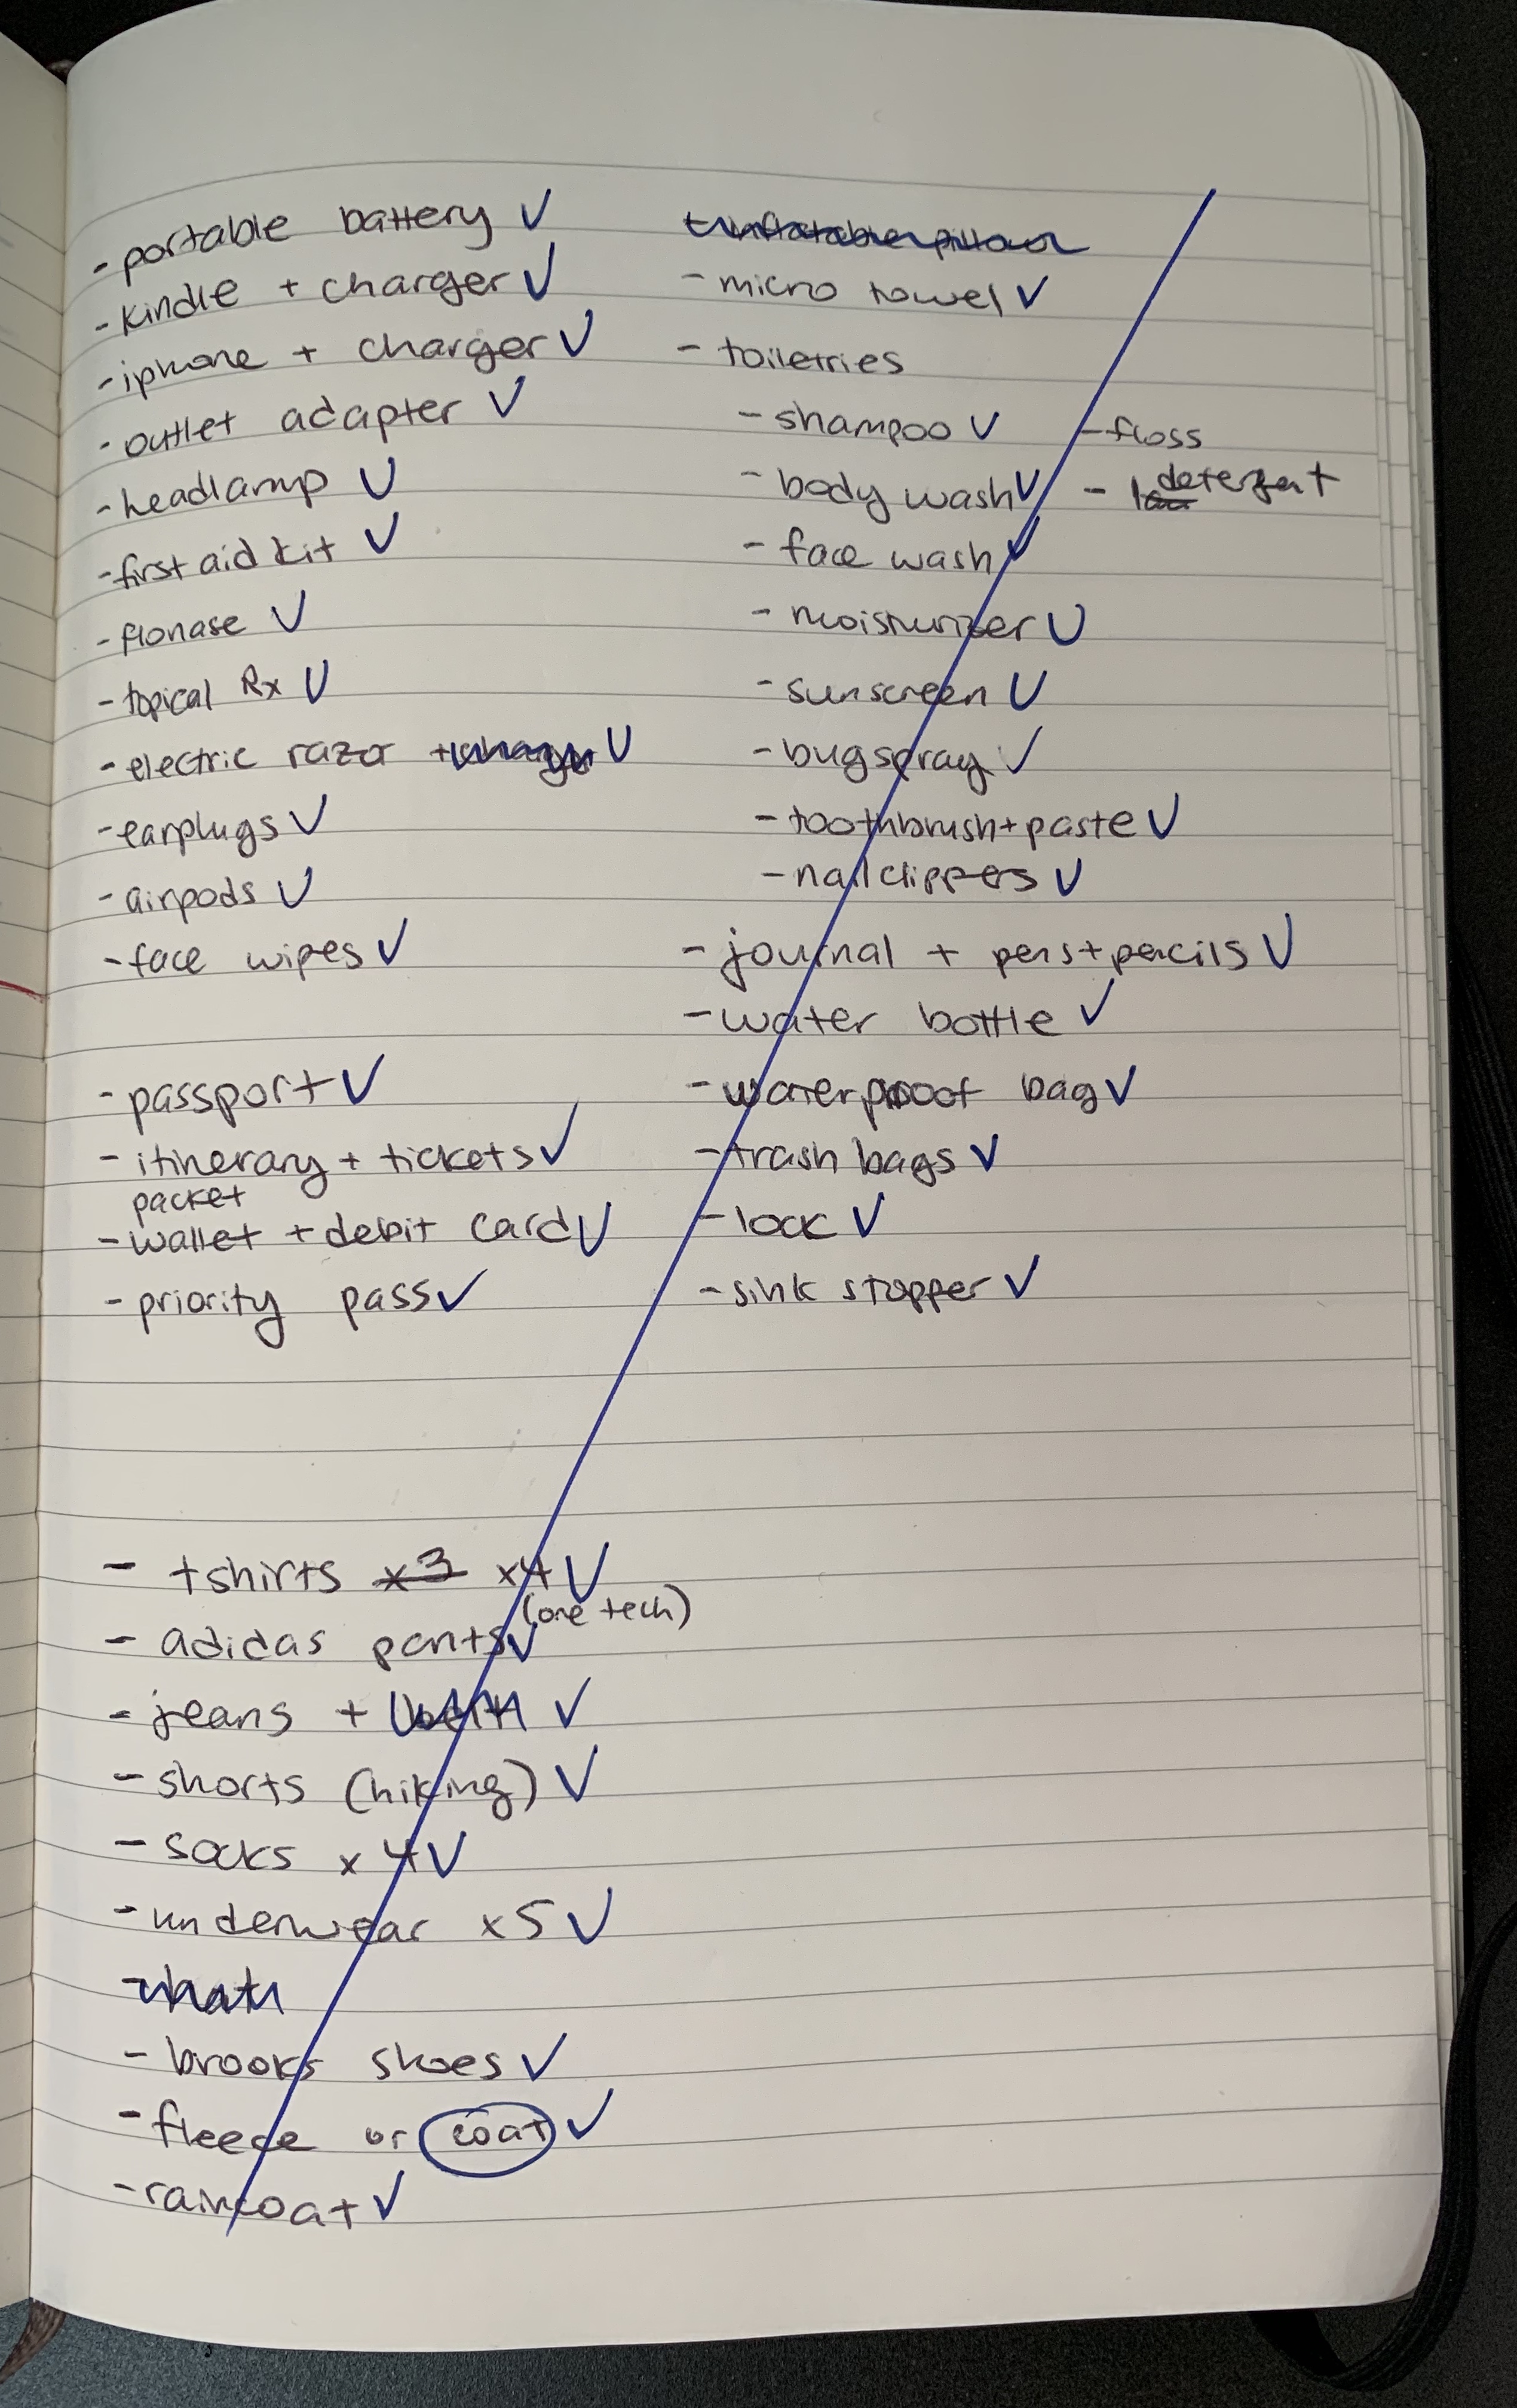 - portable battery ✓
- kindle + charger ✓
- iphone + charger ✓
- outlet adapter ✓
- headlamp ✓
- first aid kit ✓
- flonase ✓
- topical Rx ✓
- electric razor + charger ✓
- earplugs ✓
- airpods ✓
- face wipes ✓
- passport ✓
- itinerary + tickets ✓
packet
- wallet + debit card ✓
- priority pass ✓
- inflatable pillow
- micro towel ✓
- toiletries
- shampoo ✓
- body wash ✓
- face wash ✓
- moisturizer ✓
- sunscreen ✓
- bug spray ✓
- toothbrush + paste ✓
- nail clippers ✓
- floss
- detergent
- journal + pens + pencils ✓
- water bottle ✓
- waterproof bag ✓
- trash bags ✓
- lock ✓
- sink stopper ✓
- tshirts x3 x4 ✓
(one tech)
- adidas pants ✓
- jeans + belt ✓
- shorts (hiking) ✓
- socks x 4 ✓
- underwear x5 ✓
- hat
- brooks shoes ✓
- fleece or coat ✓
- raincoat ✓